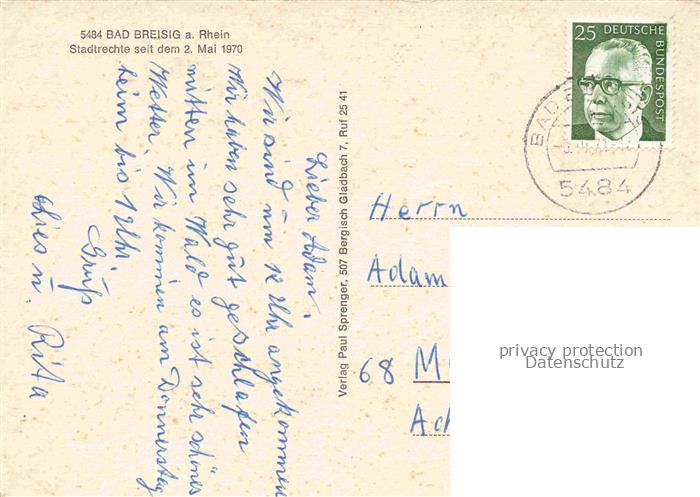 5484 BAD BREISIG a. Rhein
Stadtrechte seit dem 2. Mai 1970
Lieber Adam,
Wir sind um 12 Uhr angekommen
Wir haben sehr gut geschlafen
mitten im Wald es ist sehr schönes
Wetter, Wir kommen am Donnerstag
heim bis 12 Uhr.
Gruß
Lies u. Rita
Verlag Paul Sprenger, 507 Bergisch Gladbach 7, Ruf 25 41
25 DEUTSCHE BUNDESPOST
BAD
5484
Herrn
Adam
68 M
Ach
privacy protection
Datenschutz